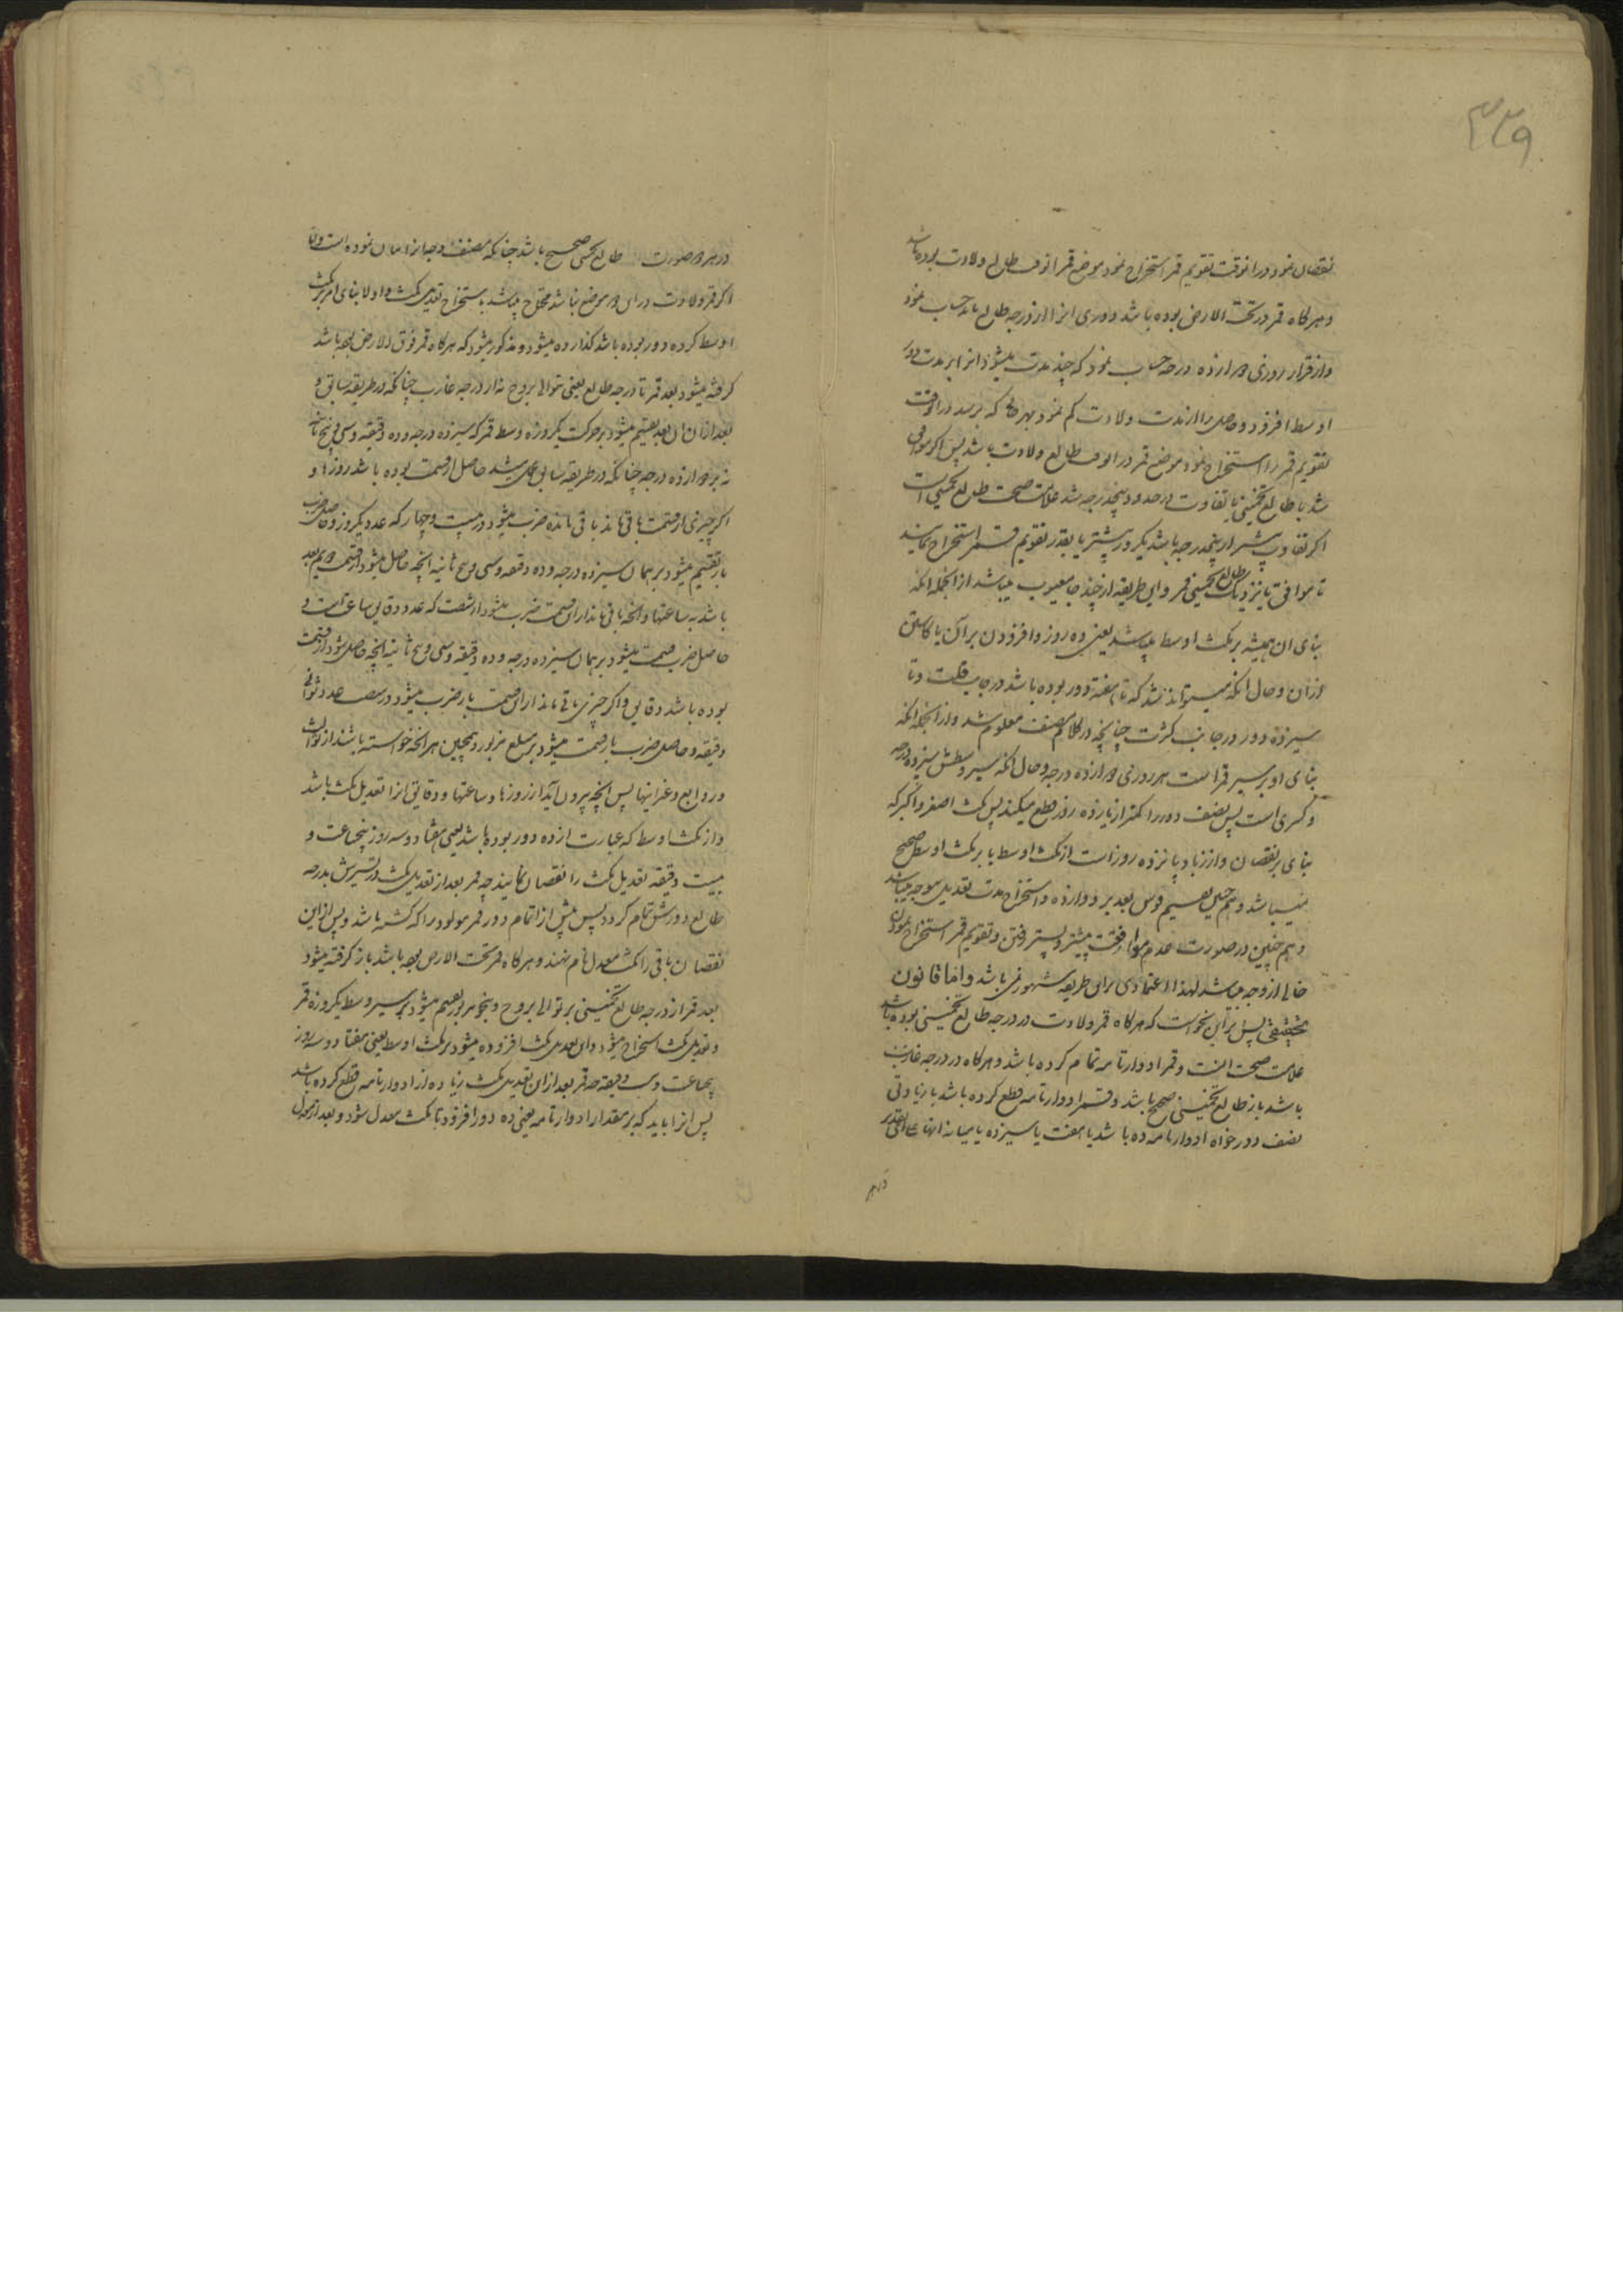 ۳۳۹
نقصان نمود و در انوقت تقویم قمر استخراج نمود موضع قمر انوقت طالع ولادت بوده باشد
و هر کاه قمر در تحت الارض بوده باشد دوری انرا از درجه طالع باید حساب نمود
و از قرار روزی دوازده درجه حساب نمود که چند مدت میشود انرا بر مدت دور
اوسط افزود و حاصل را از مدت ولادت کم نمود بهر جا که برسد در انوقت
تقویم قمر را استخراج نمود موضع قمر در انوقت طالع ولادت باشد پس اکر موافق
شد با طالع تخمینی یا تفاوت در حدود پنجدرجه شد علامت صحت طالع تخمینی است
اکر تفاوت بیشتر از پنجدرجه باشد یکروز پیشتر یا بعدتر تقویم قمر استخراج نمایند
تا موافق یا نزدیک بطالع تخمینی شود و این طریقه از چند جا معیوب میباشد از انجمله انکه
بنای ان همیشه بر مکث اوسط میباشد یعنی ده روز و افزودن بر آن یا کاستن
از ان و حال انکه میتواند شد که تا هفت دور بوده باشد در جانب قلت و تا
سیزده دور در جانب کثرت چنانچه در کلام مصنف معلوم شد و از انجمله انکه
بنای او بر سیر قمر است هر روزی دوازده درجه و حال انکه سیر وسطش سیزده درجه
و کسری است پس نصف دور را کمتر از پانزده روز قطع میکند پس مکث اصغر و اکبر که
بنای بر نقصان و ازدیاد پانزده روز است از مکث اوسط یا بر مکث اوسط صحیح
نمیباشد و همچنین تقسیم قوس بعد بر دوازده و استخراج مدت تعدیل موجه نمیباشد
و هم چنین در صورت عدم موافقت پیشتر و پستر رفتن و تقویم قمر استخراج نمودن
خالی از وجه میباشد لهذا اعتمادی بر این طریقه مشهور نمی باشد و اما قانون
تحقیقی پس بر این نحو است که هر کاه قمر ولادت در درجه طالع تخمینی بوده باشد
علامت صحت است و قمر ادوار تامه تمام کرده باشد و هر کاه در درجه غارب
باشد باز طالع تخمینی صحیح باشد و قمر ادوار تامه قطع کرده باشد با زیادتی
نصف دور خواه ادوار تامه ده باشد یا هفت یا سیزده یا میانه انها علی التقدیر
در هر
در هر دو صورت طالع تخمینی صحیح باشد چنانکه مصنف وجه انرا بیان نموده است و اما
اکر قمر ولادت در این دو موضع نباشد محتاج میباشد باستخراج تعدیل مکث و اولا بنای امر بر مکث
اوسط که ده دور بوده باشد کذارده میشود و مذکور میشود که هر کاه قمر فوق الارض بوده باشد
کرفته میشود بعد قمر تا درجه طالع یعنی بتوالی بروج نه از درجه غارب چنانکه در طریقه سابق و
بعد از ان ان بعد تقسیم میشود بر حرکت یکروزه وسط قمر که سیزده درجه و ده دقیقه و سی و پنج ثانیه
نه بر دوازده درجه چنانکه در طریقه سابق عمل میشد حاصل از قسمت بوده باشد روزها و
اکر چیزی از قسمت باقی ماند باقی مانده ضرب میشود در بیست و چهار که عدد یکروز و حاصل ضرب
باز تقسیم میشود بر همان سیزده درجه و ده دقیقه و سی و پنج ثانیه انچه حاصل میشود از قسمت دویم بعد
باشد به ساعتها و انچه باقی ماند از این قسمت ضرب میشود در شصت که عدد دقایق ساعت است و
حاصل ضرب قسمت میشود بر همان سیزده درجه و ده دقیقه و سی و پنج ثانیه انچه حاصل میشود از قسمت
بوده باشد دقایق و اکر چیزی باقی ماند از این قسمت باز ضرب میشود در شصت عدد ثوانی
دقیقه و حاصل ضرب باز قسمت میشود بر مبلغ مزبور و همچنین هر انچه خواسته باشند از ثوالث
و روابع و غیر اینها پس انچه بیرون آید از روزها و ساعتها و دقایق انرا تعدیل مکث باشد
و از مکث اوسط که عبارت از ده دور بوده باشد یعنی هفتاد و سه روز پنجساعت و
بیست دقیقه تعدیل مکث را نقصان نمایند چه قمر بعد از تعدیل مکث در تسییرش بدرجه
طالع دورش تمام کردد پس پیش از اتمام دور قمر مولود را کشته باشد و پس از این
نقصان باقی را مکث معدل نام نهند و هر کاه قمر تحت الارض بوده باشد باز کرفته میشود
بعد قمر از درجه طالع تخمینی بر توالی بروج و بنحو مزبور تقسیم میشود بر سیر وسط یکروزه قمر
و تعدیل مکث استخراج میشود و این تعدیل مکث افزوده میشود بر مکث اوسط یعنی هفتاد و سه روز
پنجساعت و بیست دقیقه چه قمر بعد از این تعدیل مکث زیاده از ادوار تامه قطع کرده باشد
پس انرا باید که بر مقدار ادوار تامه یعنی ده دور افزود تا مکث معدل شود و بعد از معدل